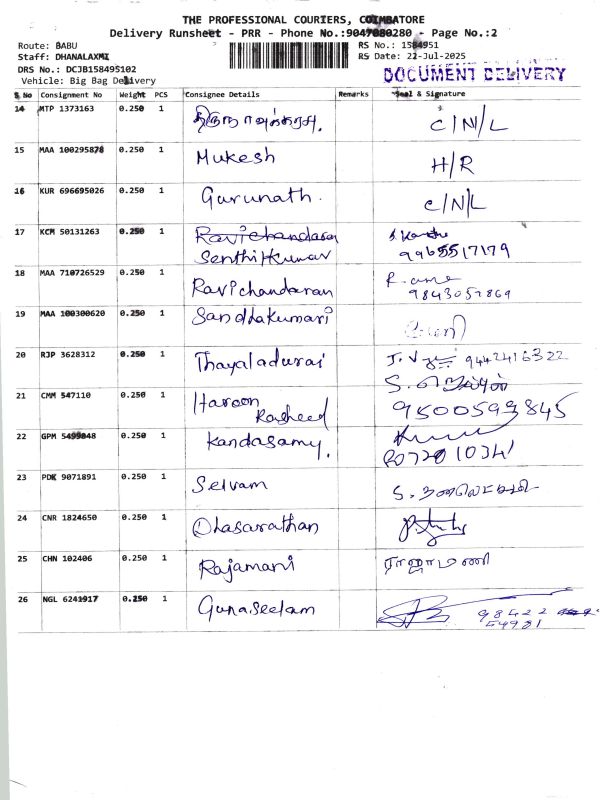 THE PROFESSIONAL COURIERS, COIMBATORE
Delivery Runsheet - PRR - Phone No.:9047080280 - Page No.:2
Route: BABU
RS No.: 1584951
Staff: DHANALAXMI
RS Date: 22-Jul-2025
DRS No.: DCJB158495102
DOCUMENT DELIVERY
Vehicle: Big Bag Delivery
S No Consignment No Weight PCS Consignee Details Remarks Seal & Signature
14 MTP 1373163 0.250 1 திருநாவுக்கரசு. C/N/L
15 MAA 100295878 0.250 1 Mukesh H/R
16 KUR 696695026 0.250 1 Gurunath. C/N/L
17 KCM 50131263 0.250 1 Ravichandaran
Senthilkumar 9965517179
18 MAA 710726529 0.250 1 Ravichandaran 9843057869
19 MAA 100300620 0.250 1 Sandhakumari
20 RJP 3628312 0.250 1 Thayaladurai 9442416322
21 CMM 547110 0.250 1 Haroon
Rasheed 9500599845
22 GPM 0.250 1 Kandasamy.
23 PDK 9071891 0.250 1 Selvam
24 CNR 1824650 0.250 1 Dhasarathan
25 CHN 102406 0.250 1 Rajamani ராஜாமணி
26 NGL 6241917 0.250 1 Gunaseelam 98422
54981